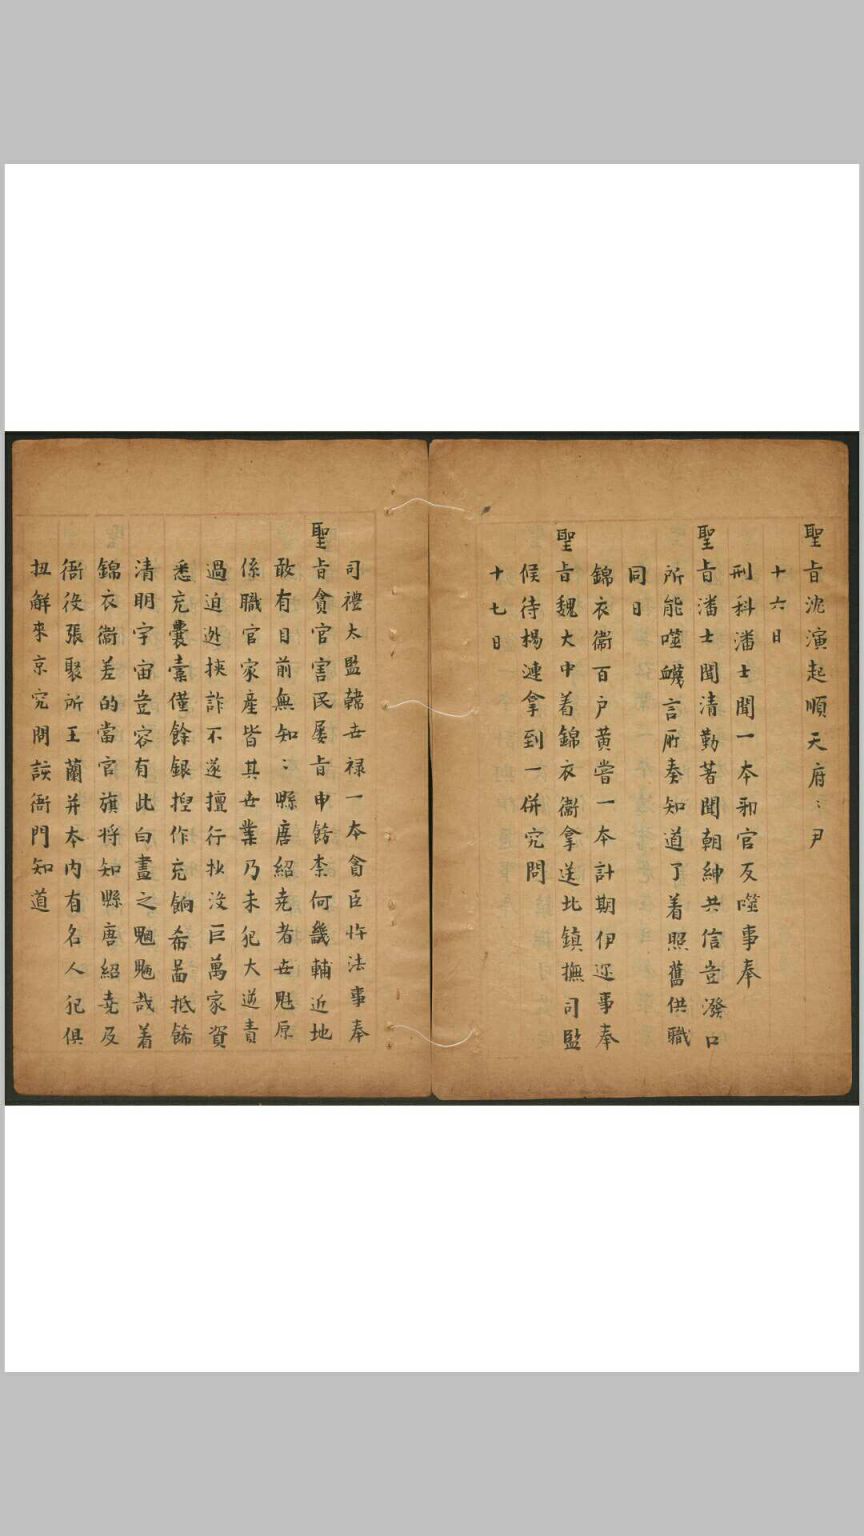 聖旨沈演起順天府〻尹
十六日
刑科潘士聞一本邪官反噬事奉
聖旨潘士聞清勤著聞朝紳共信豈潑口
所能噬衊言所奏知道了着照舊供職
同日
錦衣衞百户黄嘗一本計期伊迩事奉
聖旨魏大中着錦衣衞拿送北鎮撫司監
候待楊漣拿到一併究問
十七日
司禮太監韓世禄一本貪臣忤法事奉
聖旨貪官害民屡旨申飭柰何畿輔近地
敢有目前無知〻縣唐紹尭者世魁原
係職官家産皆其世業乃未犯大逆責
過迫逃挾詐不遂擅行抄没巨萬家資
悉充囊橐僅餘銀揑作充餉希圖抵餙
清明宇宙豈容有此白晝之魍魎哉着
錦衣衞差的當官旗将知縣唐紹尭及
衙役張聚所王蘭并本内有名人犯俱
扭解來京究問該衙門知道